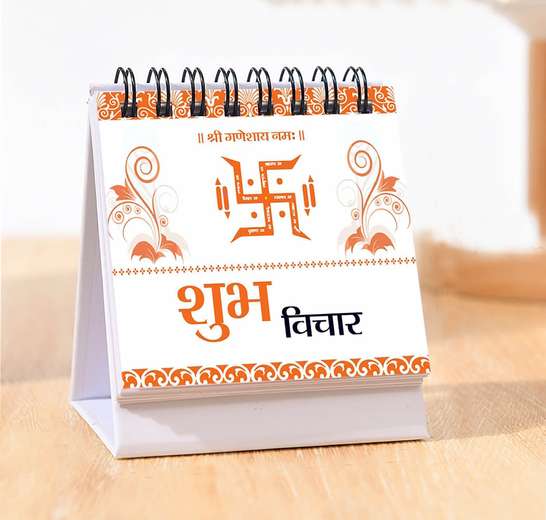 ॥ श्री गणेशाय नमः ॥
शुभ
विचार